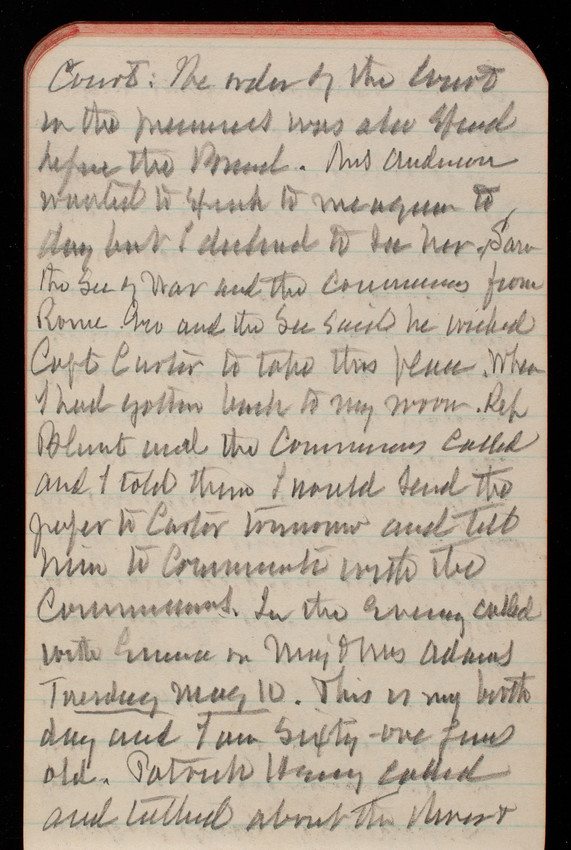 Court: The order of the Court
in the premises was also
before the Board. Mrs Anderson
wanted to speak to me again to
day but I declined to see her. Saw
the Sec of War and the Commissions from
Rome Geo and the Sec said he wished
Capt Carter to take this place. When
I had gotten back to my room. Rep
Blunt and the Commissions called
and I told them I would send the
paper to Carter tomorrow and tell
him to Communicate with the
Commissions. In the Evening called
with Emma on Maj & Mrs Adams
Tuesday May 10. This is my birth
day and I am Sixty-one years
old. Patrick Henry called
and talked about the